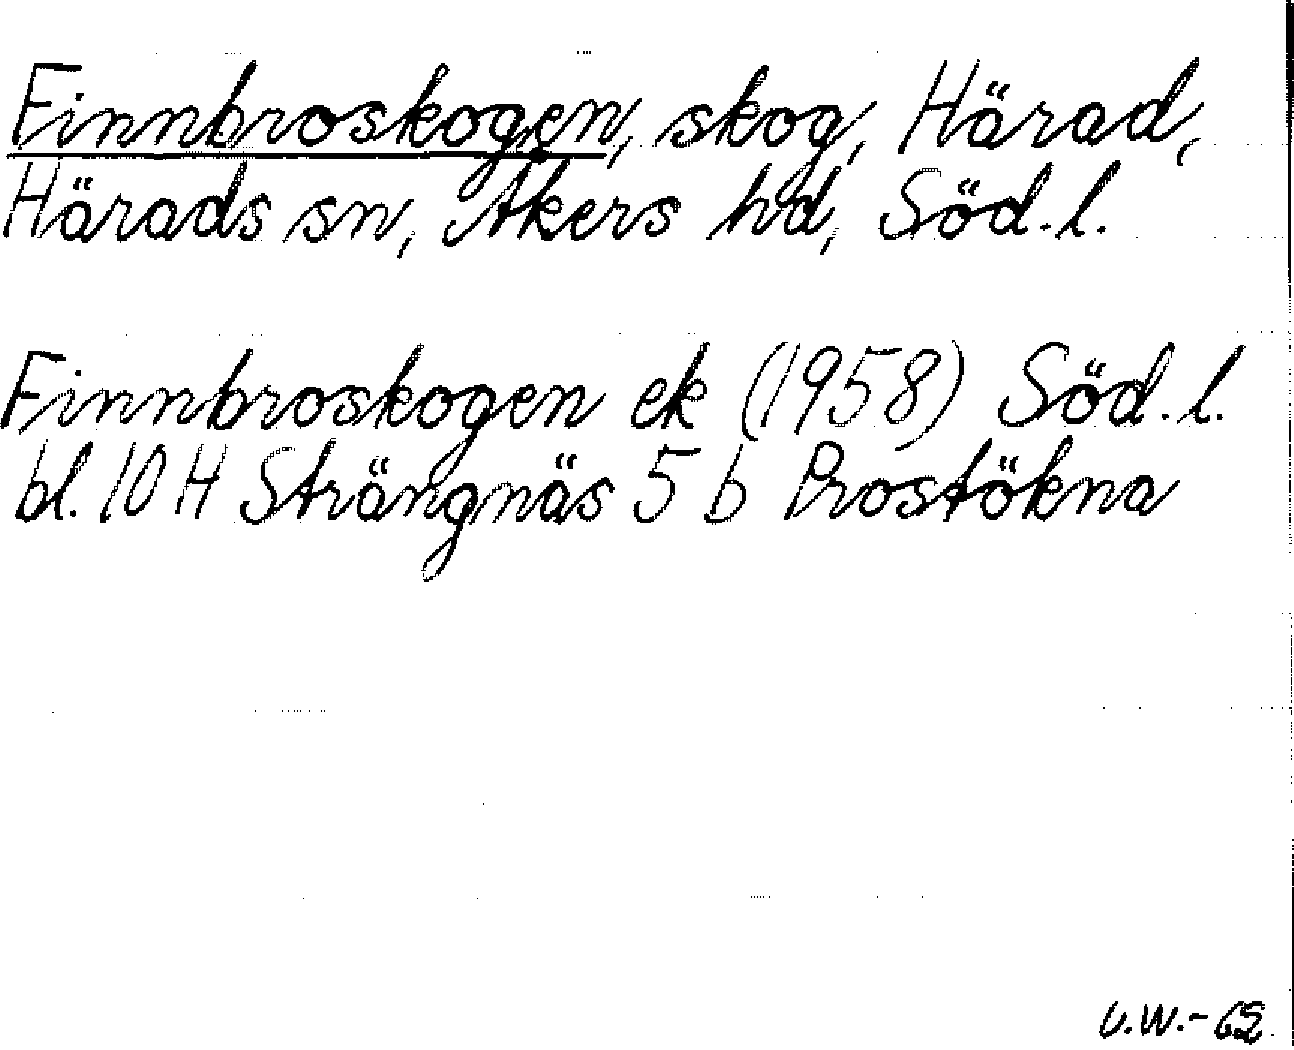 Finnbroskogen, skog, Härad,
Härads sn, Åkers hd, Söd.l.
Finnbroskogen ek (1958) Söd.l.
bl. 10 H Strängnäs 5 b Prostökna
U.W.-62